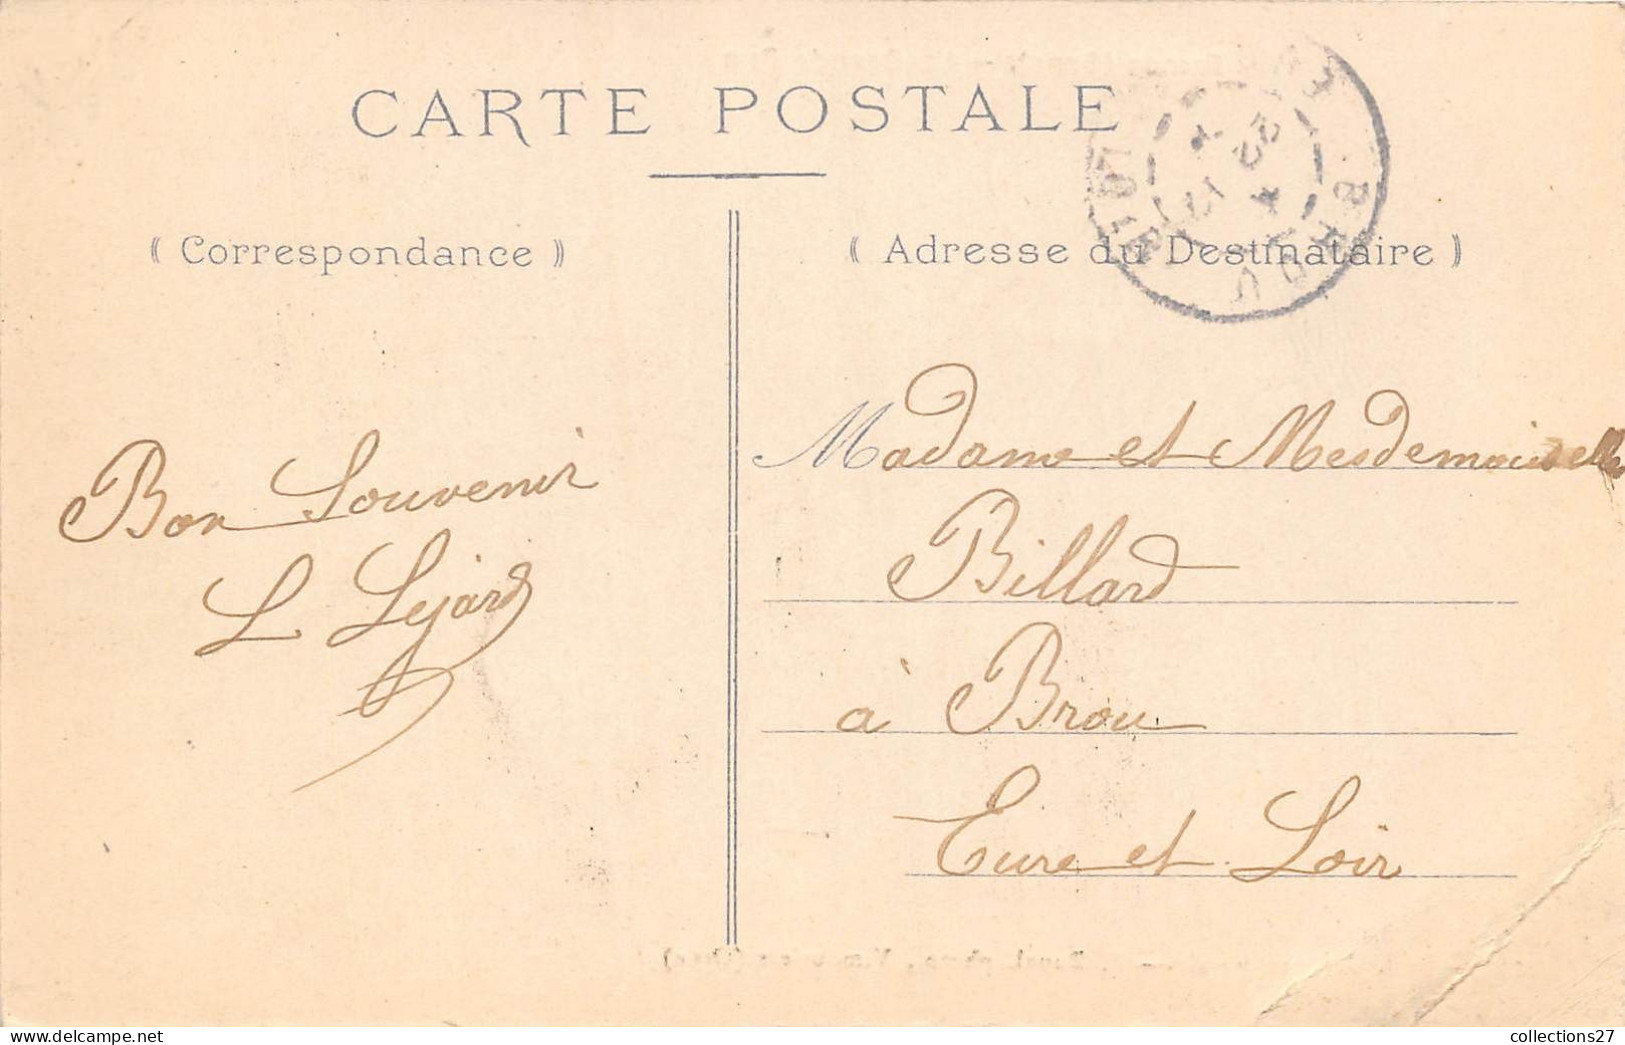 CARTE POSTALE
( Correspondance )
( Adresse du Destinataire )
BROU
Bon Souvenir
L Lejard
Madame et Mesdemoiselle
Billard
à Brou
Eure et Loir
collections27